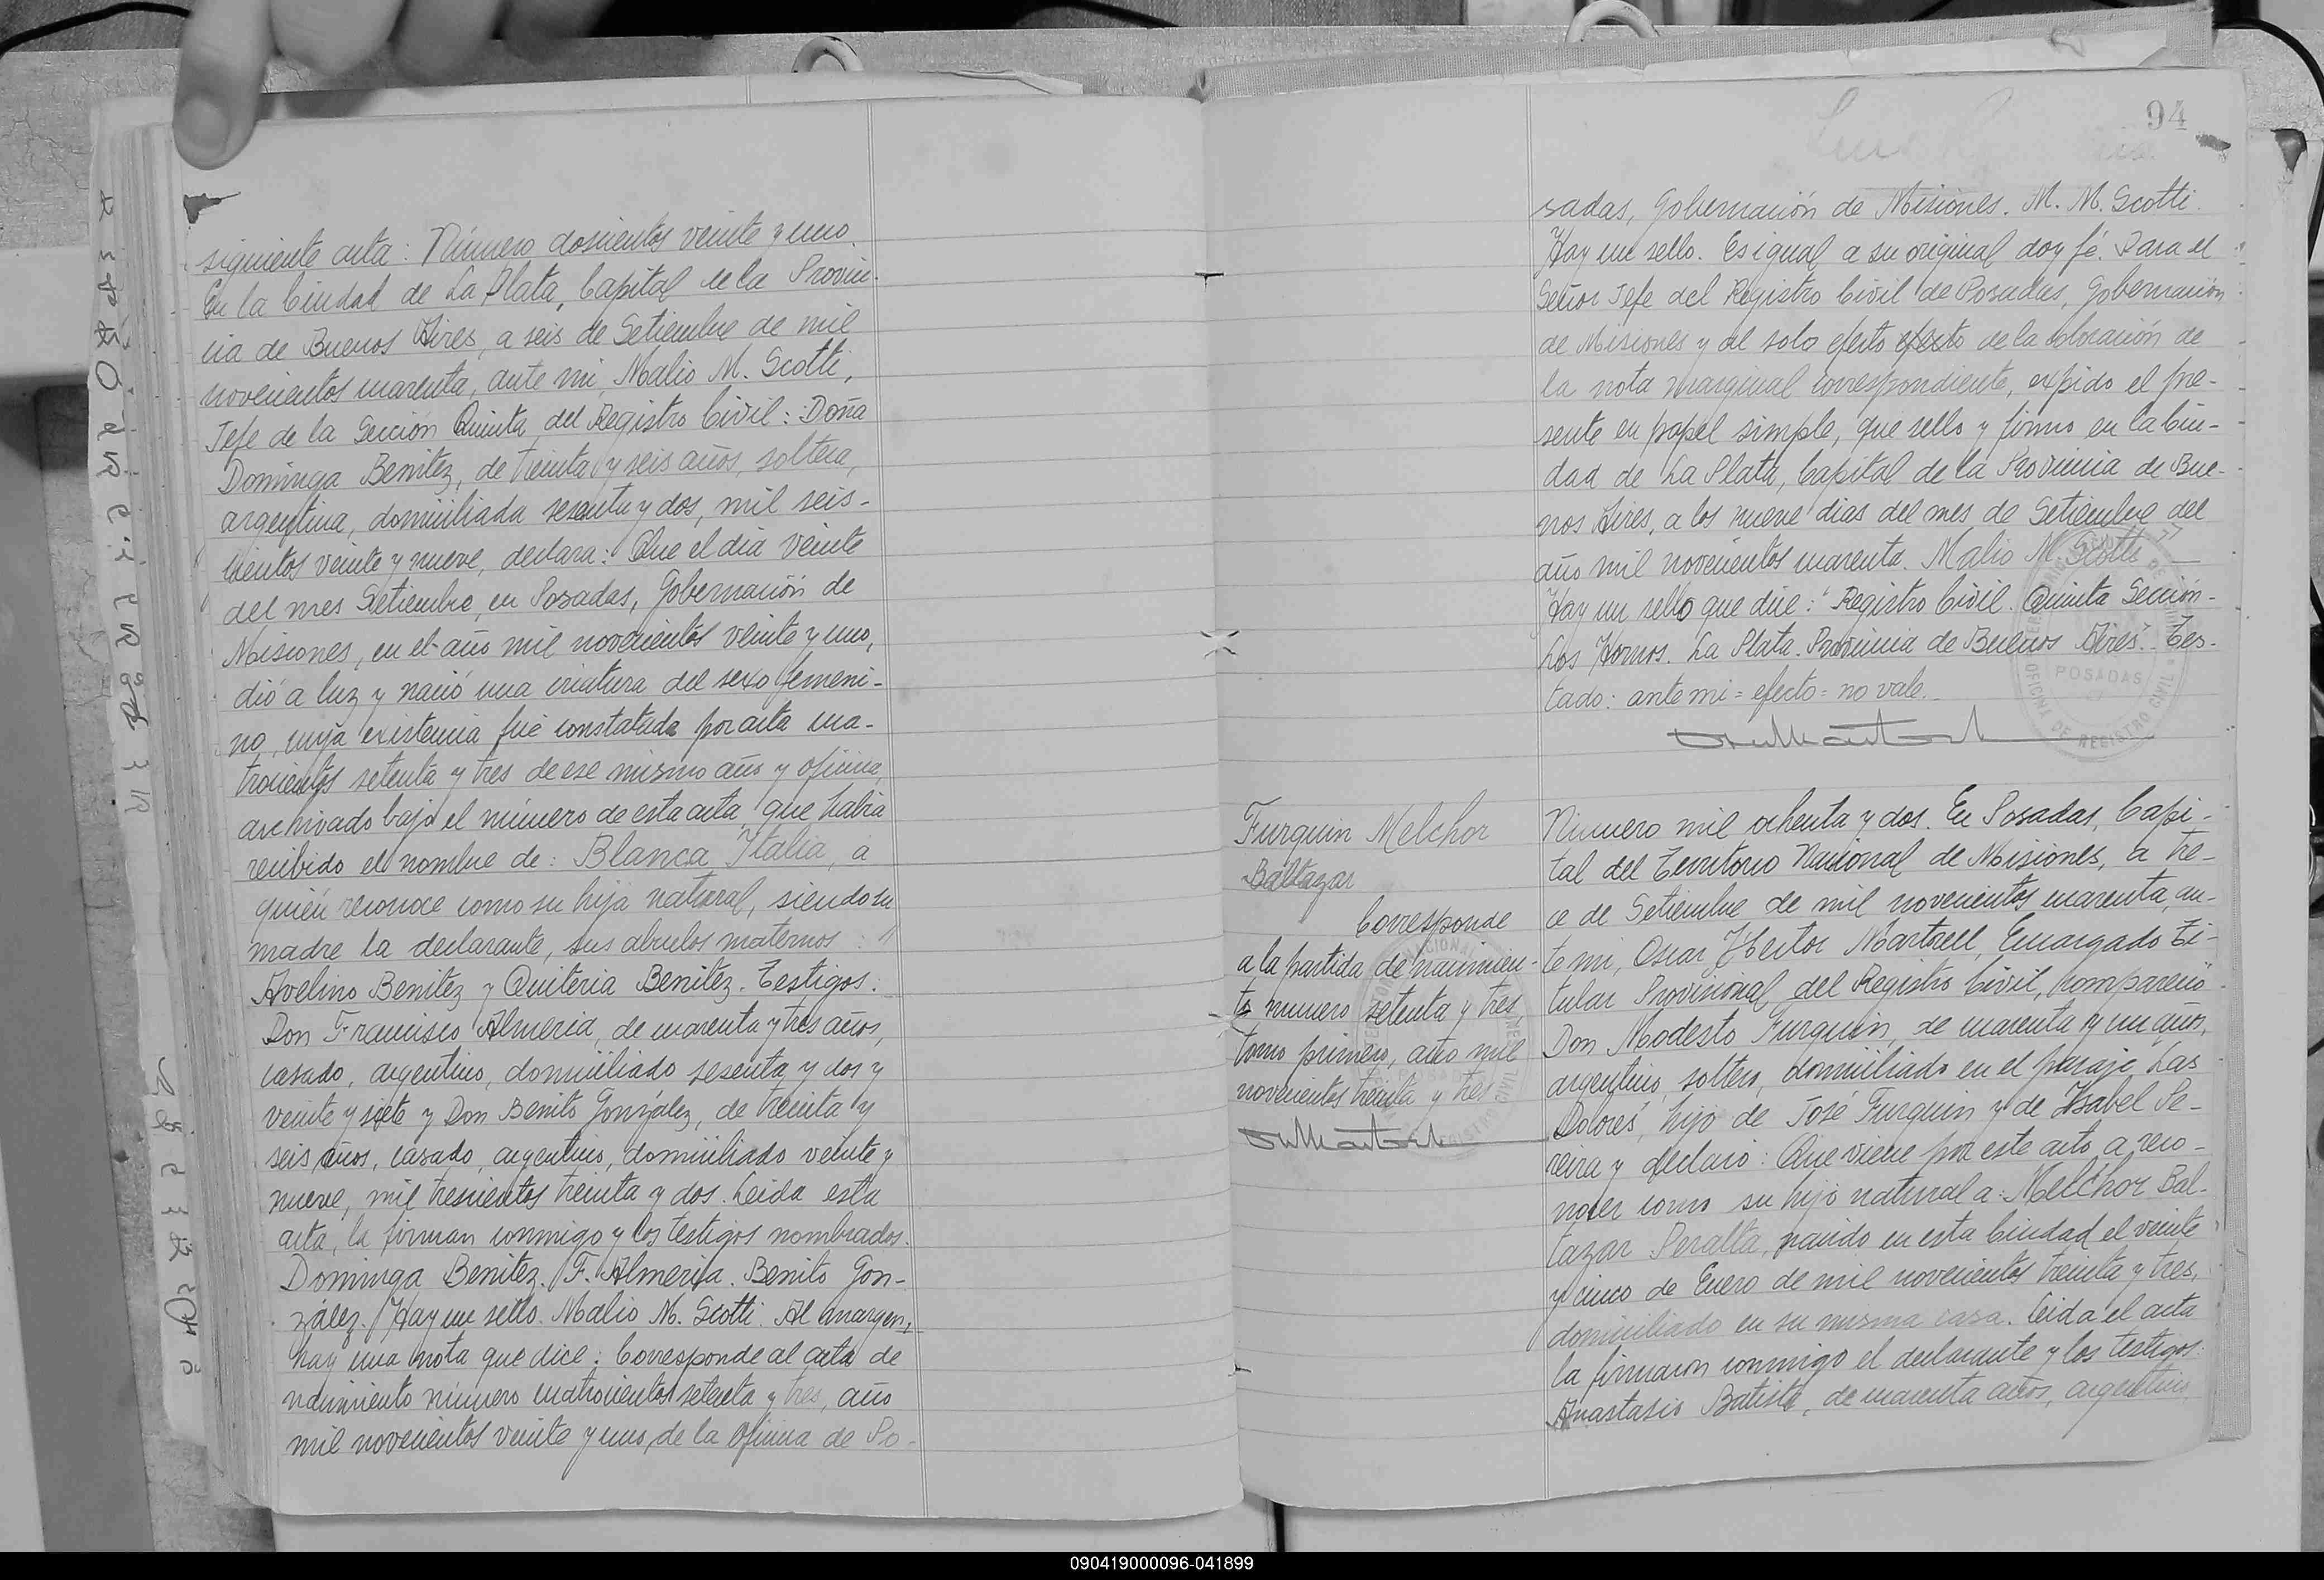 siguiente acta: Número doscientos veinte y uno.
En la Ciudad de La Plata, Capital de la Provin-
cia de Buenos Aires, a seis de Setiembre de mil
novecientos cuarenta, ante mi, Malio M. Scotti,
Jefe de la Sección Quinta del Registro Civil: Doña
Dominga Benitez, de treinta y seis años, soltera,
argentina, domiciliada sesenta y dos, mil seis-
cientos veinte y nueve, declara: Que el día veinte
del mes Setiembre, en Posadas, Gobernación de
Misiones, en el año mil novecientos veinte y uno,
dió a luz y nació una criatura del sexo femeni-
no, cuya existencia fué constatada por acta cua-
trocientos setenta y tres de ese mismo año y oficina,
archivado bajo el número de esta acta, que había
recibido el nombre de: Blanca Italia, a
quién reconoce como su hija natural, siendo su
madre la declarante, sus abuelos maternos:
Avelino Benitez y Quiteria Benitez. Testigos:
Don Francisco Almeria, de cuarenta y tres años,
casado, argentino, domiciliado sesenta y dos y
veinte y siete y Don Benito González, de treinta y
seis años, casado, argentino, domiciliado veinte y
nueve, mil trescientos treinta y dos. Leida esta
acta, la firman conmigo y los testigos nombrados.
Dominga Benitez. F. Almeria. Benito Gon-
zález. Hay un sello. Malio M. Scotti. Al margen:
hay una nota que dice: Corresponde al acta de
nacimiento número cuatrocientos setenta y tres, año
mil novecientos veinte y uno, de la Oficina de Po-
94
sadas, Gobernación de Misiones. M. M. Scotti.
Hay un sello. Es igual a su original doy fé. Para el
Señor Jefe del Registro Civil de Posadas, Gobernación
de Misiones y al solo efecto efecto de la colocación de
la nota marginal correspondiente, expido el pre-
sente en papel simple, que sello y firmo en la Ciu-
dad de La Plata, Capital de la Provincia de Bue-
nos Aires, a los nueve dias del mes de Setiembre del
año mil novecientos cuarenta. Malio M. Scotti
Hay un sello que dice: "Registro Civil. Quinta Sección-
Los Hornos. La Plata. Provincia de Buenos Aires". Tes-
tado: ante mi = efecto = no vale.
POSADAS
OFICINA DE REGISTRO CIVIL
Furquin Melchor
Baltazar
Corresponde
a la partida de nacimien-
to numero setenta y tres,
tomo primero, año mil
novecientos treinta y tres
Número mil ochenta y dos. En Posadas, Capi-
tal del Territorio Nacional de Misiones, a tre-
ce de Setiembre de mil novecientos cuarenta, an-
te mi, Oscar Héctor Martorell, Encargado Ti-
tular Provisional del Registro Civil, compareció
Don Modesto Furquin, de cuarenta y un años,
argentino, soltero, domiciliado en el paraje Las
Dolores, hijo de José Furquin y de Isabel Pe-
reira y declaró: Que viene por este acto a reco-
nocer como su hijo natural a: Melchor Bal-
tazar Peralta, nacido en esta Ciudad el veinte
y cinco de Enero de mil novecientos treinta y tres,
domiciliado en su misma casa. Leida el acta
la firmaron conmigo el declarante y los testigos:
Anastasio Batista, de cuarenta años, argentino
090419000096-041899